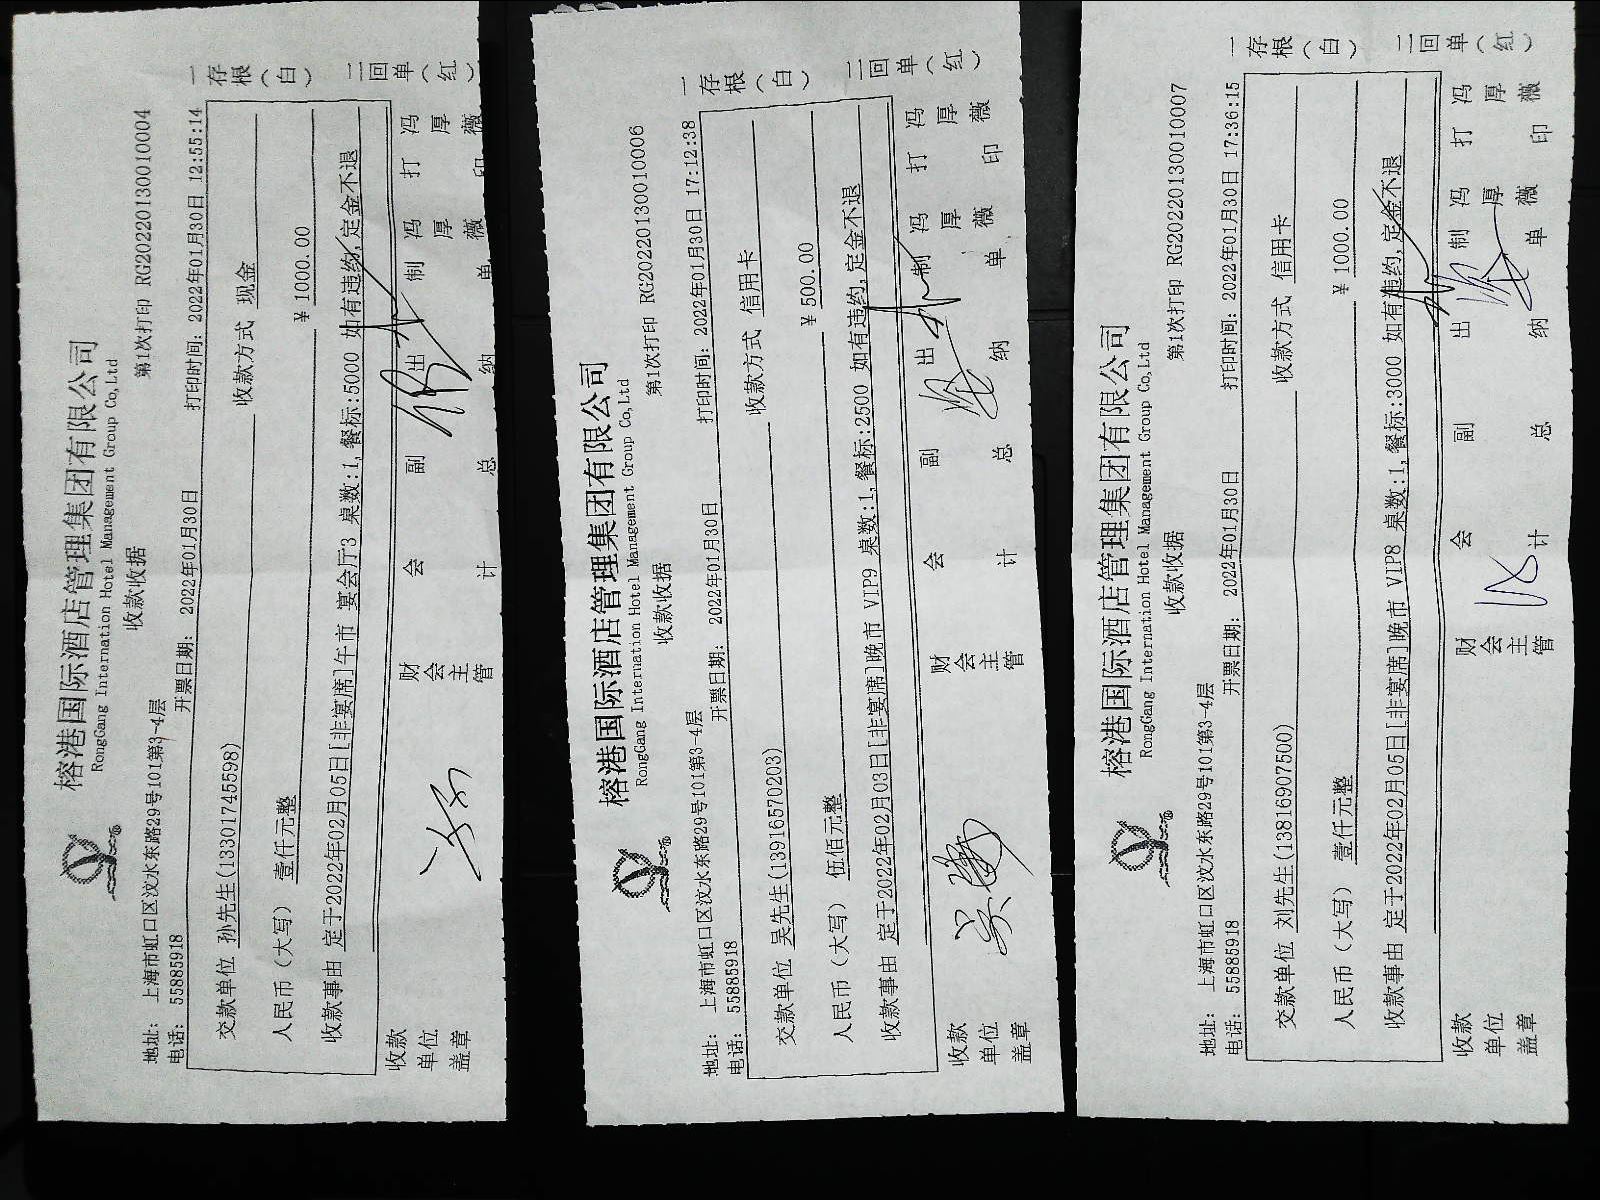 榕港国际酒店管理集团有限公司
RongGang Internation Hotel Management Group Co,Ltd
收款收据
第1次打印 RG20220130010004
地址: 上海市虹口区汶水东路29号101第3-4层
电话: 55885918
开票日期: 2022年01月30日
打印时间: 2022年01月30日 12:55:14
交款单位 孙先生(13301745598)
收款方式 现金
人民币（大写） 壹仟元整
￥1000.00
收款事由 定于2022年02月05日[非宴席]午市 宴会厅3 桌数:1,餐标:5000 如有违约,定金不退
一存根（白） 二回单（红）
收款单位盖章
财会主管
会计
副总
出纳
制单 冯厚薇
打印 冯厚薇
榕港国际酒店管理集团有限公司
RongGang Internation Hotel Management Group Co,Ltd
收款收据
第1次打印 RG20220130010006
地址: 上海市虹口区汶水东路29号101第3-4层
电话: 55885918
开票日期: 2022年01月30日
打印时间: 2022年01月30日 17:12:38
交款单位 吴先生(13916570203)
收款方式 信用卡
人民币（大写） 伍佰元整
￥500.00
收款事由 定于2022年02月03日[非宴席]晚市 VIP9 桌数:1,餐标:2500 如有违约,定金不退
一存根（白） 二回单（红）
收款单位盖章
财会主管
会计
副总
出纳
制单 冯厚薇
打印 冯厚薇
榕港国际酒店管理集团有限公司
RongGang Internation Hotel Management Group Co,Ltd
收款收据
第1次打印 RG20220130010007
地址: 上海市虹口区汶水东路29号101第3-4层
电话: 55885918
开票日期: 2022年01月30日
打印时间: 2022年01月30日 17:36:15
交款单位 刘先生(13816907500)
收款方式 信用卡
人民币（大写） 壹仟元整
￥1000.00
收款事由 定于2022年02月05日[非宴席]晚市 VIP8 桌数:1,餐标:3000 如有违约,定金不退
一存根（白） 二回单（红）
收款单位盖章
财会主管
会计
副总
出纳
制单 冯厚薇
打印 冯厚薇